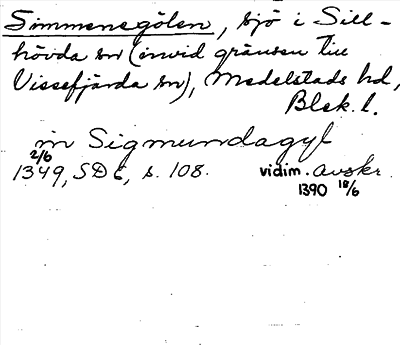 Simmensgölen, sjö i Sill-
hövda sn (invid gränsen till
Vissefjärda sn), Medelstads hd,
Blek. l.
in Sigmundagyl
2/6
1349, SD 6, s. 108. vidim. avskr.
1390 18/6